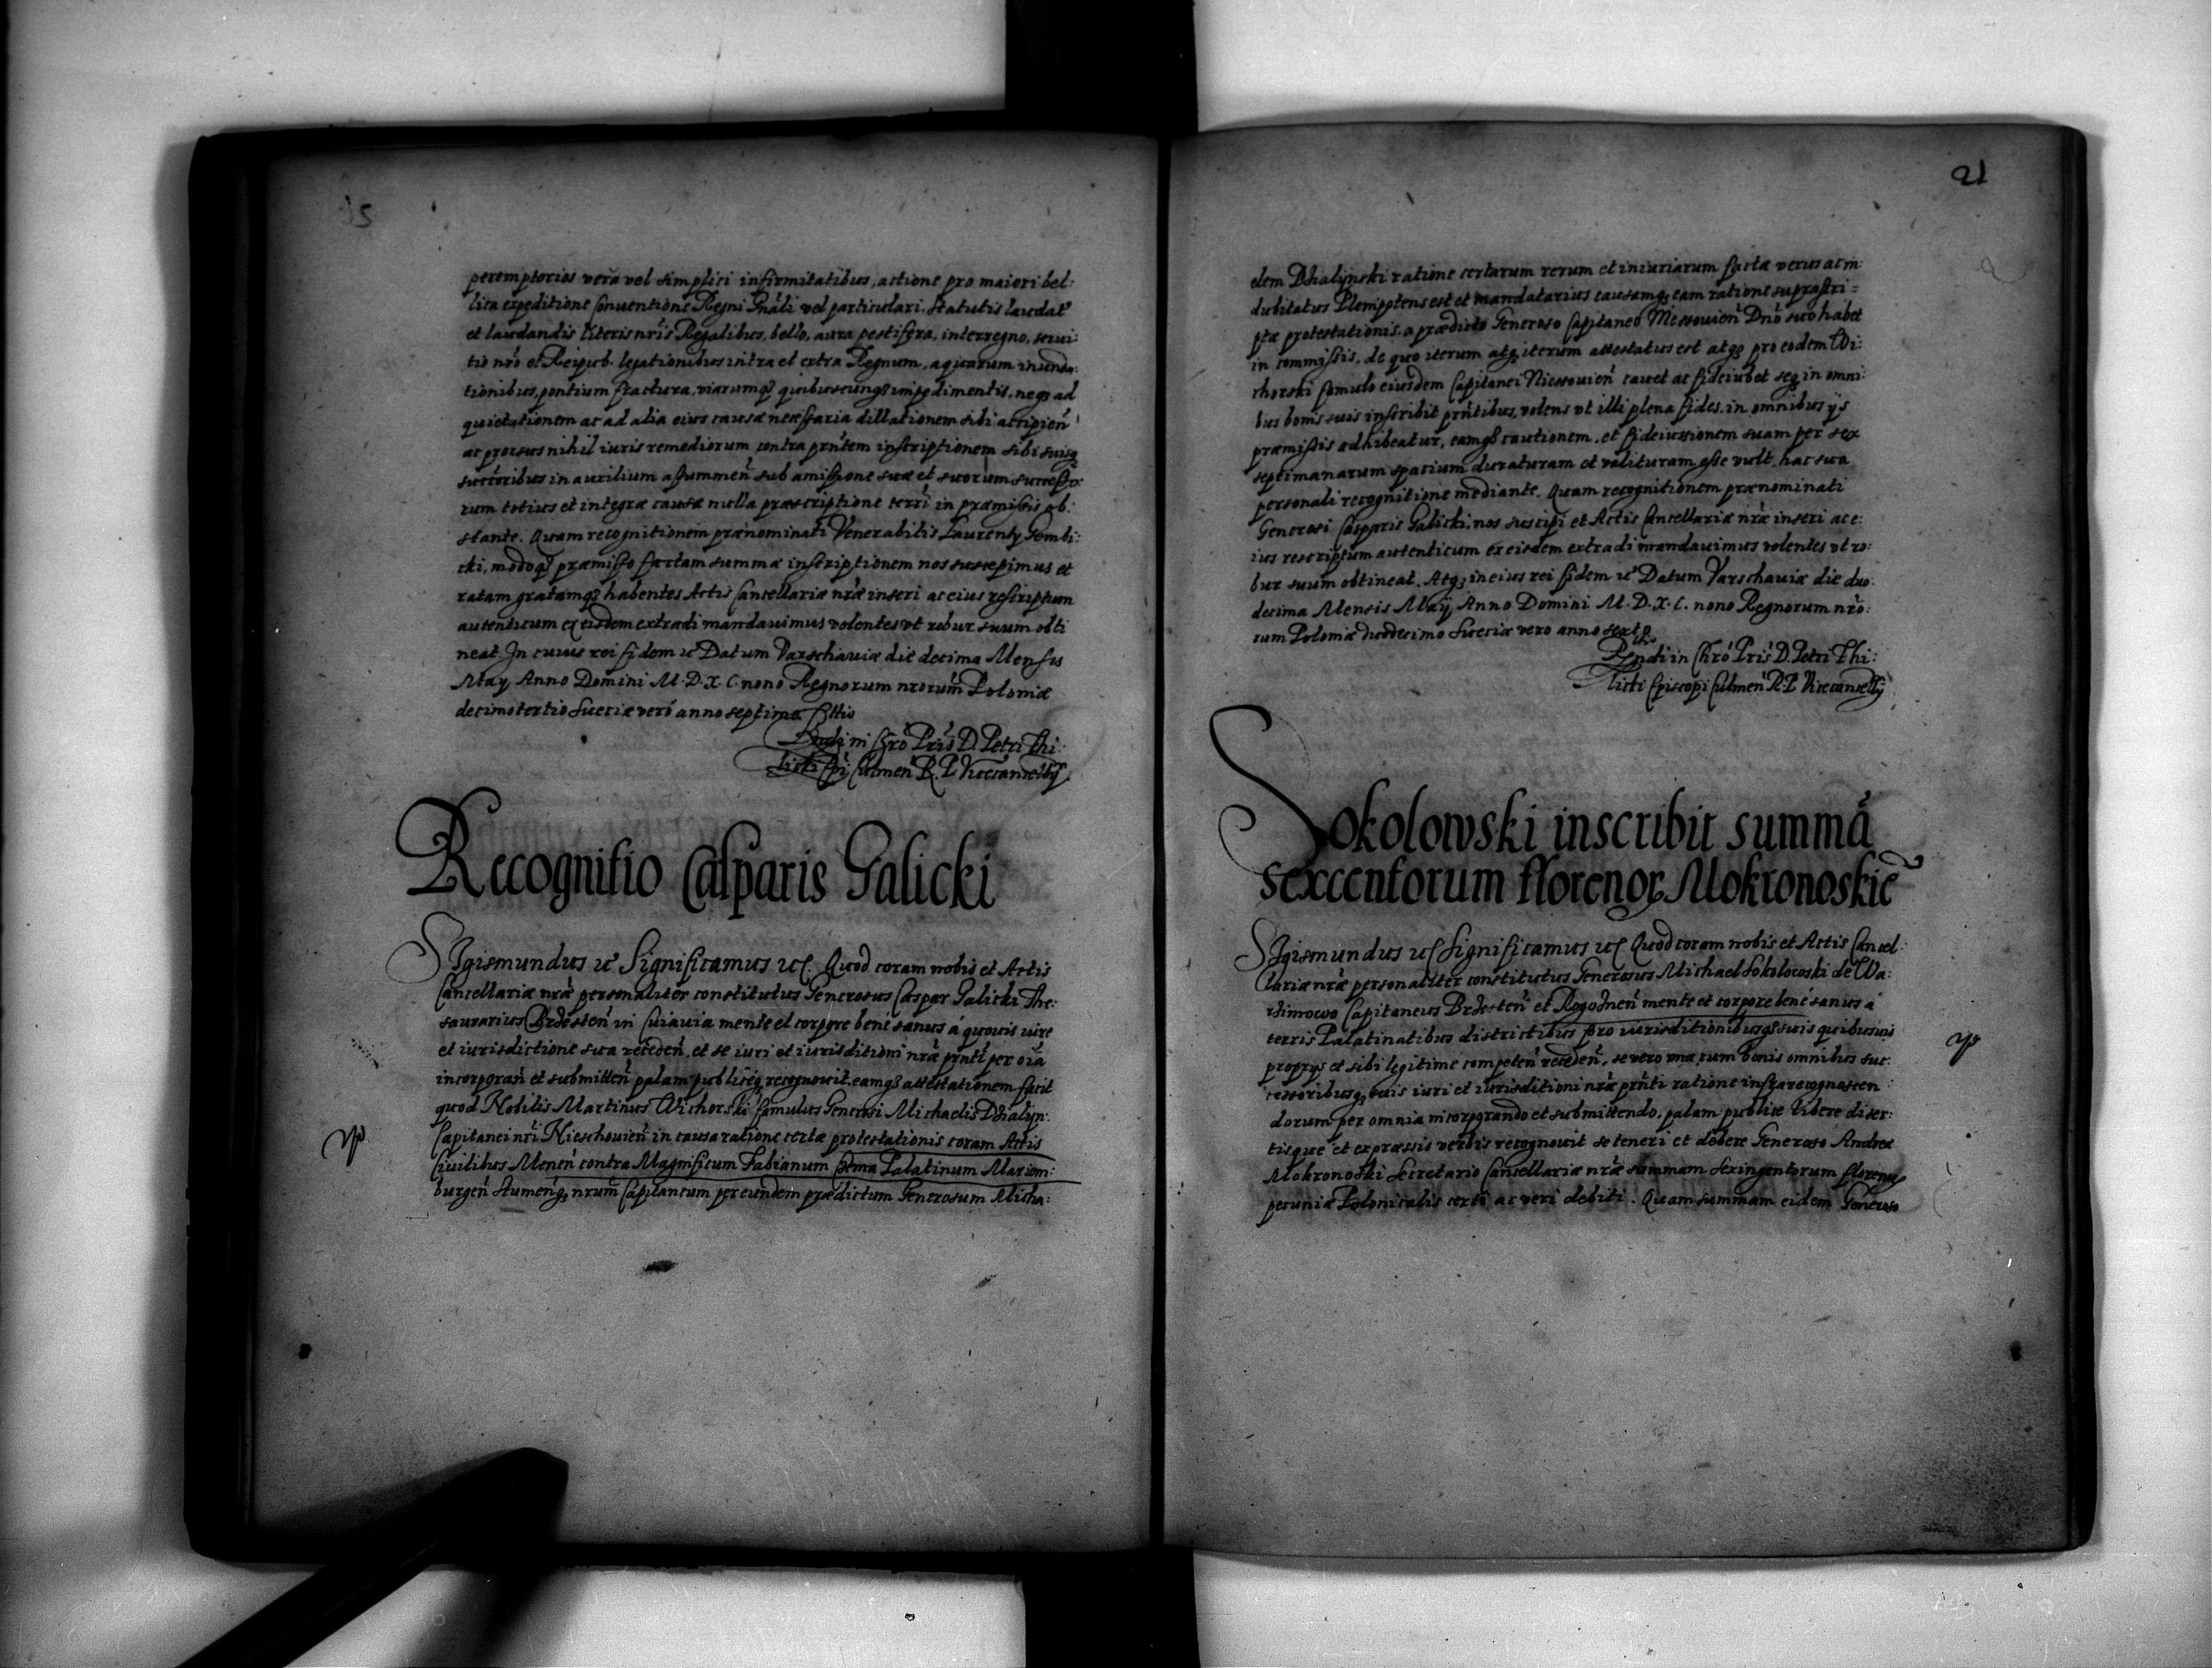 peremptorias verã vel simplici infirmitatibus, actione pro maiori bel:
lica expeditione Conventione Regni Gnãli vel particulari. Statutis laudat
et laudandis literis nr̃is Regalibus, bello, aura pestifera, interregno, servi:
tio nr̃o et Reipub. legationibus intra et extra Regnum, aquarum inunda:
tionibus, pontium fractura, viarumq₃ quibuscunq₃ impedimentis, neq₃ ad
quietationem ac ad alia eius causæ necessaria dillationem sibi accipien̄
ac prorsus nihil iuris remediorum contra prn̄tem inscriptionem sibi suisq₃
succ̄oribus in auxilium assummen̄ sub amissione suæ et suorum successo:
rum totius et integræ causæ nulla præscriptione terr̄i in præmissis ob:
stante. Quam recognitionem prænominati Venerabilis Laurenty Gembi:
cki, modoq₃ præmisso factam summæ inscriptionem nos suscepimus et
ratam gratamq₃ habentes Actis Cancellariæ nr̃æ inseri ac eius rescriptum
autenticum ex eisdem extradi mandavimus volentes vt robur suum obti
neat. In cuius rei fidem &c Datum Varschaviæ die decima Mensis
May Anno Domini M.D.X.C. nono Regnorum nrorum̃ Poloniæ
decimotertio Sueciæ veró anno septimo
Rndi in Chrõ Pris̃ D. Petri Thi:
licki Epi Culmen̄ R. P. Vicecancelly
Recognitio Casparis Galicki
SIgismundus &c Significamus &c. Quod coram nobis et Actis
Cancellariæ nræ̃ personaliter constitutus Generosus Caspar Galicki The:
saurarius Brzesten̄ in Cuiavia mente et corpore bene sanus á quovis iure
et iurisdictione sua receden̄, et se iuri et iurisditioni nræ̃ prn̄ti per oĩa
incorporan̄ et submitten̄ palam publicéq₃ recognovit. eamq₃ attestationem facit
quod Nobilis Martinus Wichorski famulus Generosi Michaelis Dzialyn:
Capitanei nr̃i Nieschovien̄ in causa ratione certæ protestationis coram Actis
Civilibus Meven̄ contra Magnificum Fabianum Czema Palatinum Mariem:
burgen̄ Stumen̄q₃ nrum̃ Capitaneum per eundem prædictum Generosum Micha:
21
elem Dzialynski ratione certarum rerum et iniuriarum factæ verus ac in:
dubitatus Plenipotens est et mandatarius causamq₃ eam ratione suprascri=
ptæ protestationis. a prædicto Generoso Capitaneo Niessovien̄ Dnõ suo habet
in commissis, de quo iterum atq₃ iterum attestatus est atq₃ pro eodem Wi:
chorski famulo eiusdem Capitanei Niessovien̄ cavet ac fideiubet seq₃ in omni:
bus bonis suis inscribit prn̄tibus, volens vt illi plena fides. in omnibus ijs
præmissis adhibeatur, eamq₃ cautionem, et fideiussionem suam per sex
septimanarum spacium duraturam et valituram esse vult, hac sua
personali recognitione mediante. Quam recognitionem prænominati
Generosi Casparis Galicki, nos suscipi et Actis Cancellariæ nræ̃ inseri ac e:
ius rescriptum autenticum ex eisdem extradi mandavimus volentes vt ro:
bur suum obtineat. Atq₃ in eius rei fidem &c Datum Varschaviæ die duo:
decima Mensis Maij Anno Domini M.D.X.C. nono Regnorum nrõ:
rum Poloniæ duodecimo Sueciæ vero anno sexto
Rndi in Chrõ Pris̃ D. Petri Thi:
licki Episcopi Culmen̄ R. P. Vicecancelly
Sokolowski inscribit summã
sexcentorum florenor₃ Mokronoskie
SIgismundus &c Significamus &c Quod coram nobis et Actis Cancel:
lariæ nræ̃ personaliter constitutus Generosus Michael Sokolowski de Wa:
rzimowo Capitaneus Brzesten̄ et Rogoznen̄ mente et corpore bené sanus á
terris Palatinatibus districtibus foro iurisditionibusq₃ suis quibusuis
proprys et sibi legitime competen̄ receden̄, se vero vna cum bonis omnibus suc:
cessoribusq₃ suis iuri et iurisditioni nræ̃ prn̄ti ratione infra recognoscen
dorum per omnia incorporando et submittendo, palam publice libere diser:
tisque et expressis verbis recognovit se teneri et debere Generoso Andreæ
Mokronoski Secretario Cancellariæ nræ̃ summam sexingentorum florenor₃
pecuniæ Polonicalis certi ac veri debiti. Quam summam eidem Generoso